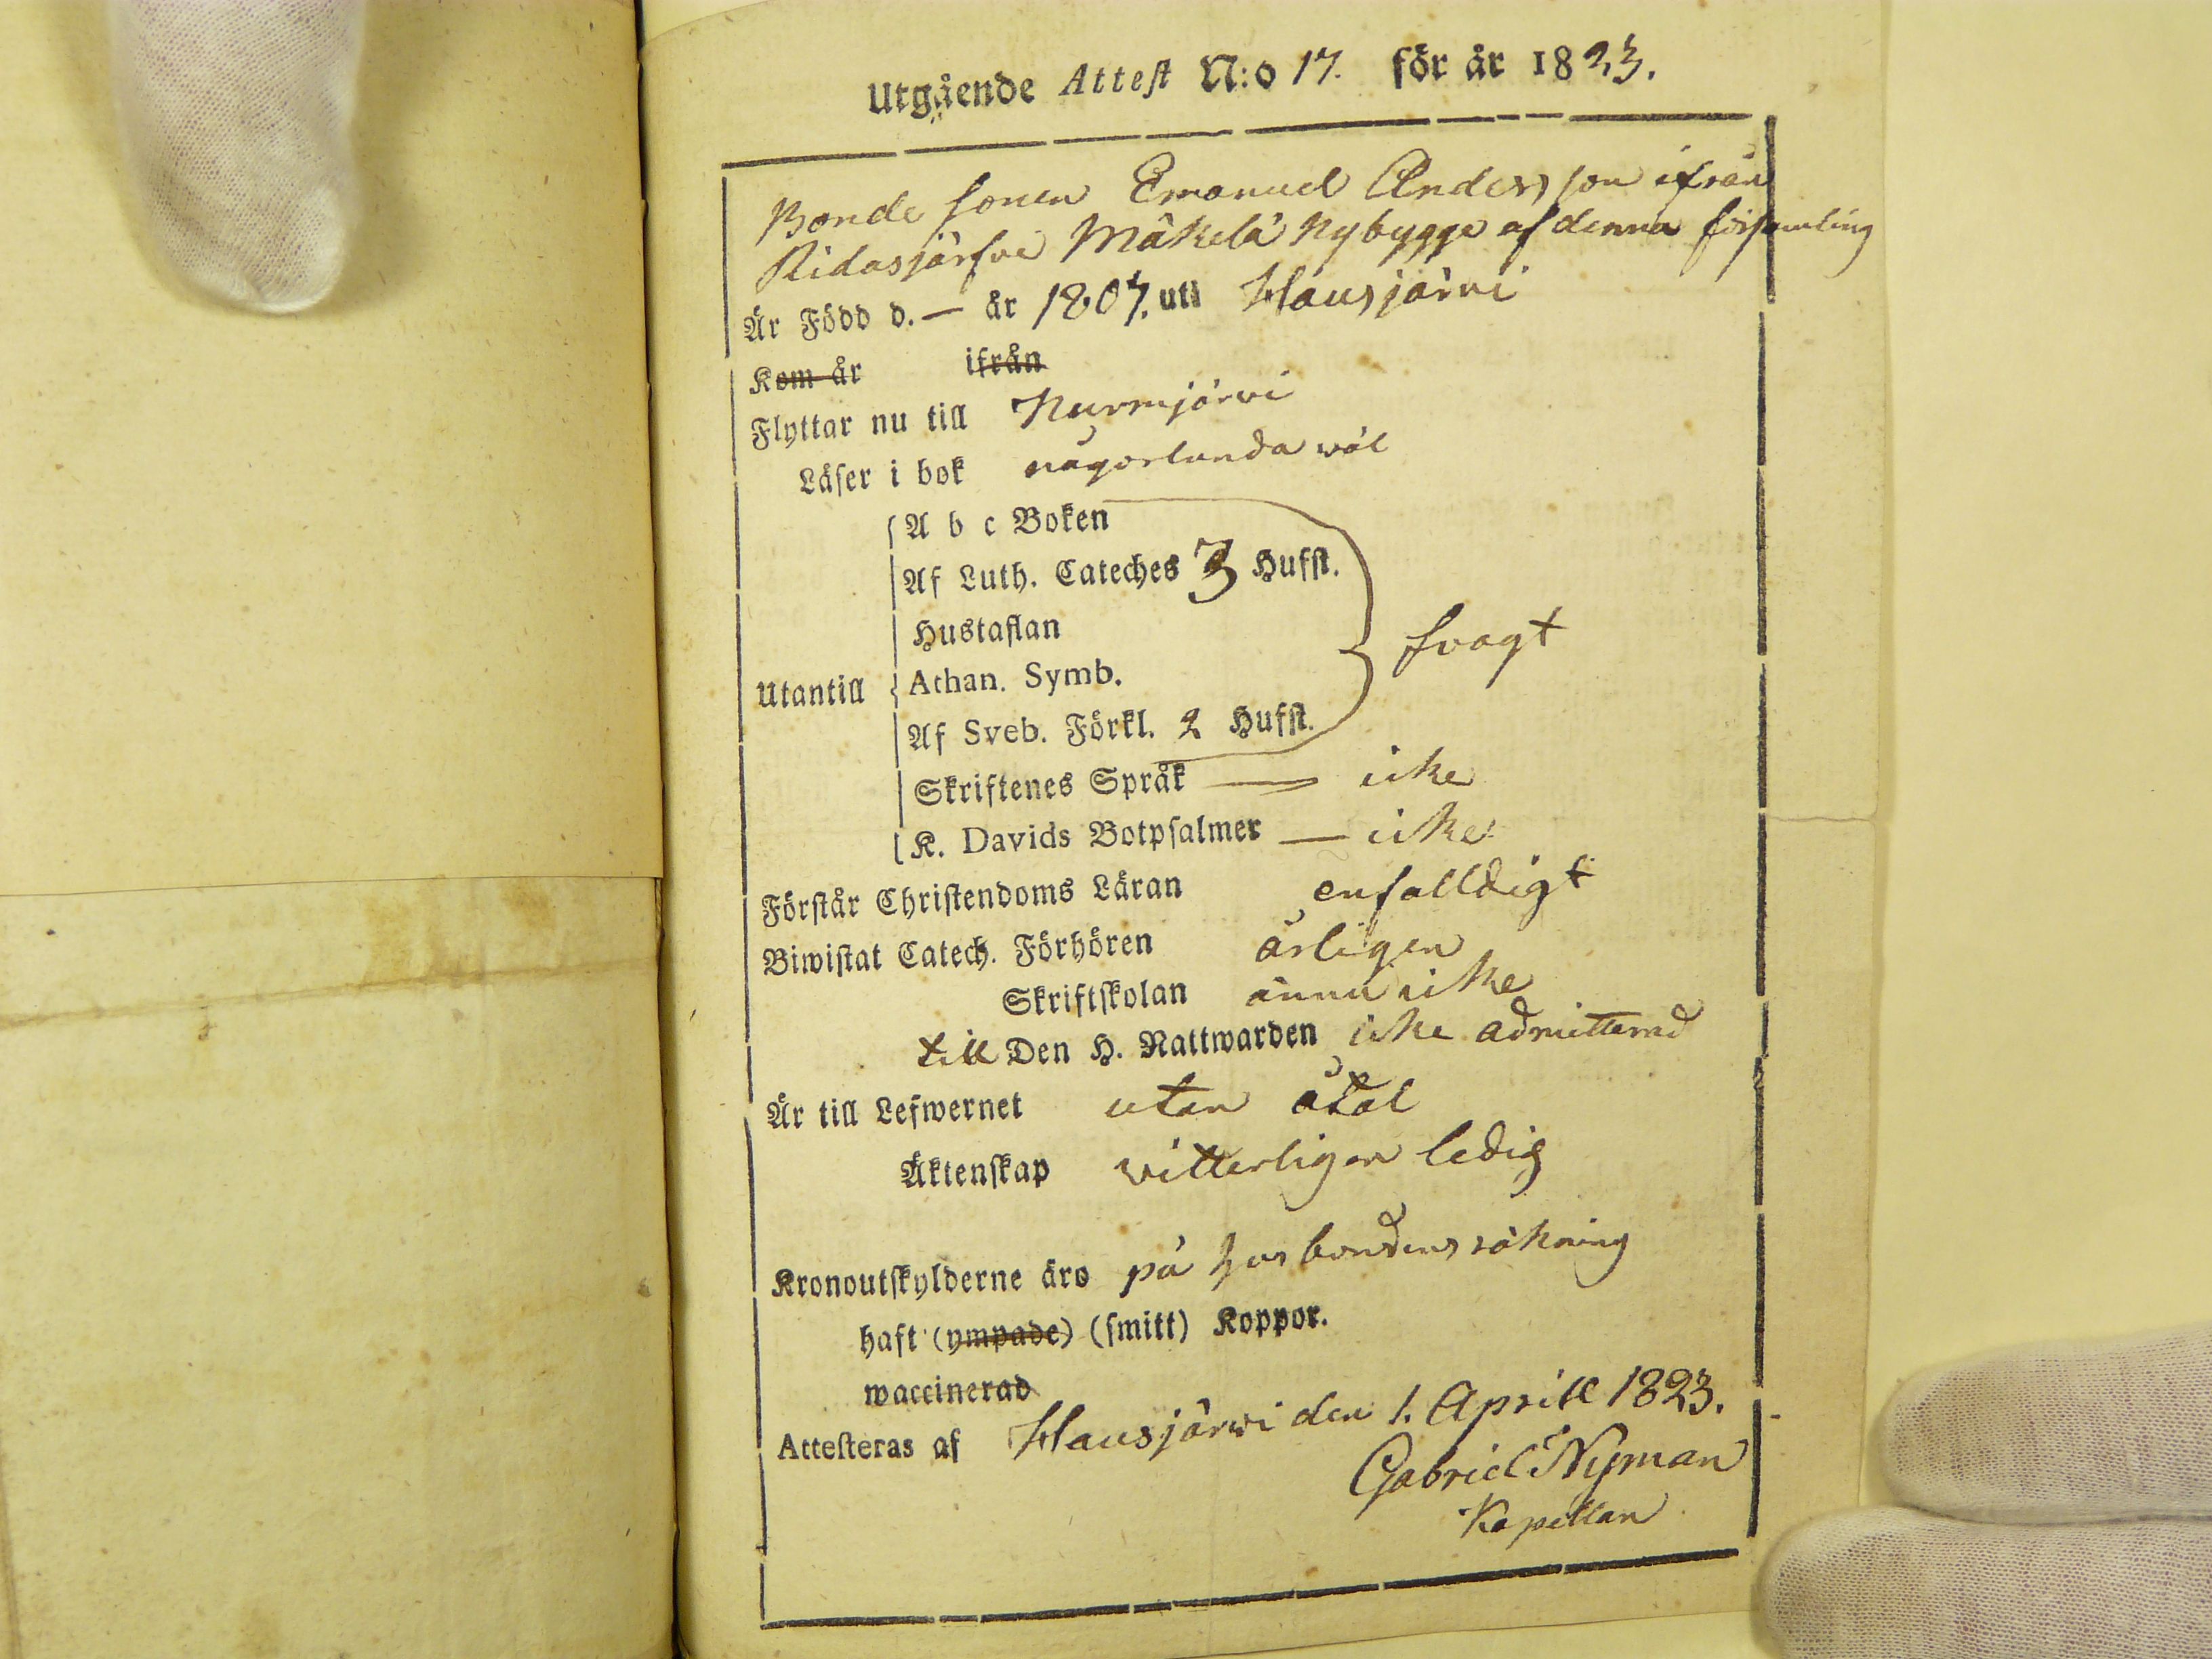 Utgående Attest N:o 17. för år 1823.
Bonde sonen Emanuel Andersson ifrån
Ridasjärfve Mäkelä Nybygge af denna församling
Är Född d. — år 1807. uti Hausjärvi
Kom år ifrån
Flyttar nu till Nurmjärvi
Läser i bok någorlunda wäl
A b c Boken
Af Luth. Cateches 3 Hufst.
Hustaflan
svagt
Utantill Athan. Symb.
Af Sveb. Förkl. 2 Hufst.
Skriftenes Språk — icke
K. Davids Botpsalmer — icke
Förstår Christendoms Läran enfalldigt
Biwistat Catech. Förhören årligen
Skriftskolan ännu icke
till Den H. Nattwarden icke admitterad
Är till Lefwernet utan åtal
Äktenskap vitterligen ledig
Kronoutskylderne äro på husbondens räkning
haft (ympade) (smitt) Koppor.
waccinerad
Attesteras af Hausjärwi den 1. Aprill 1823.
Gabriel Nyman
Kapellan